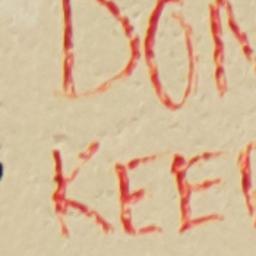 DON
KEE